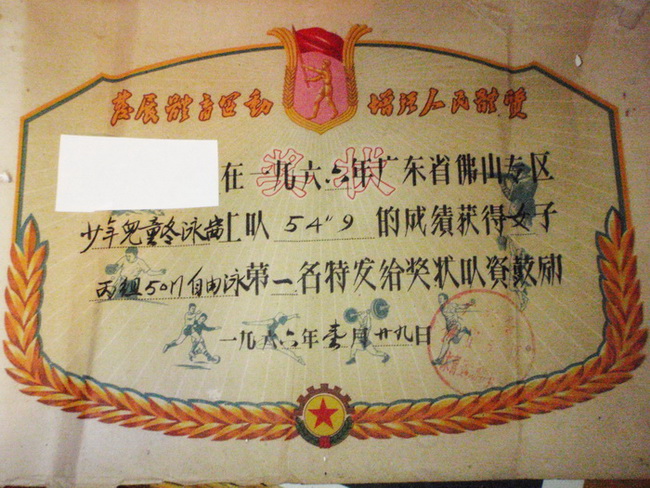 發展體育运動 增强人民體質
奖状
在一九六六年广东省佛山专区
少年兒童冬泳賽上以54"9的成績获得女子
丙组50M自由泳第一名特发给奖状以資鼓励
一九六六年壹月廿九日